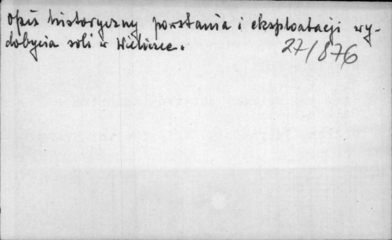 opis historyczny powstania i eksploatacji wy-
dobycia soli w Wieliczce.
27/876